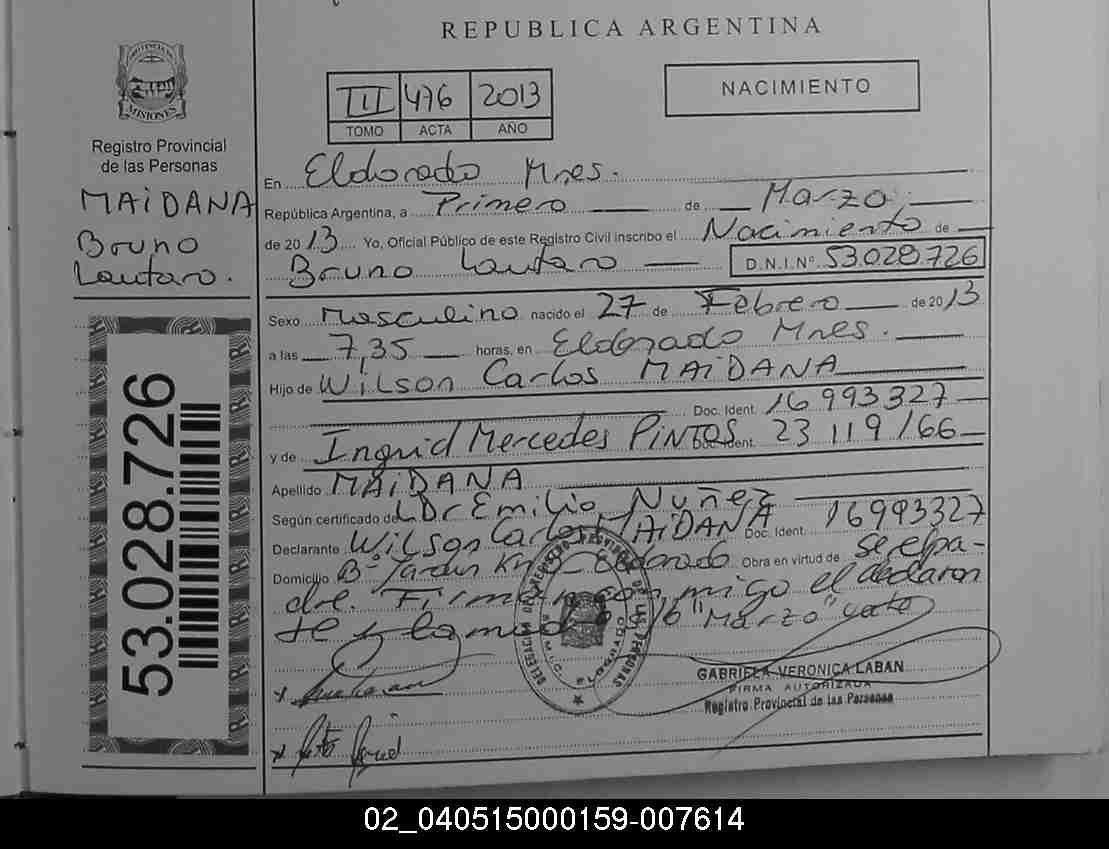 REPUBLICA ARGENTINA
PROVINCIA DE
MISIONES
Registro Provincial
de las Personas
MAIDANA
Bruno
Lautaro.
53.028.726
III 476 2013
TOMO ACTA AÑO
NACIMIENTO
En Eldorado Mnes.
República Argentina, a Primero de Marzo
de 2013 Yo, Oficial Público de este Registro Civil inscribo el Nacimiento de
Bruno Lautaro D.N.I.Nº 53.028.726
Sexo Masculino nacido el 27 de Febrero de 2013
a las 7,35 horas, en Eldorado Mnes.
Hijo de Wilson Carlos MAIDANA
Doc. Ident. 16 993 327
y de Ingrid Mercedes PINTOS Doc. Ident. 23 119 166
Apellido MAIDANA
Según certificado del Dr Emilio Nuñez
Declarante Wilson Carlos MAIDANA Doc. Ident. 16993327
Domicilio Bº Jardin Km Eldorado Obra en virtud de ser el pa-
dre. Firman conmigo el declaran
te y la madre "Marzo" vale
GABRIELA VERONICA LABAN
FIRMA AUTORIZADA
Registro Provincial de las Personas
02_040515000159-007614